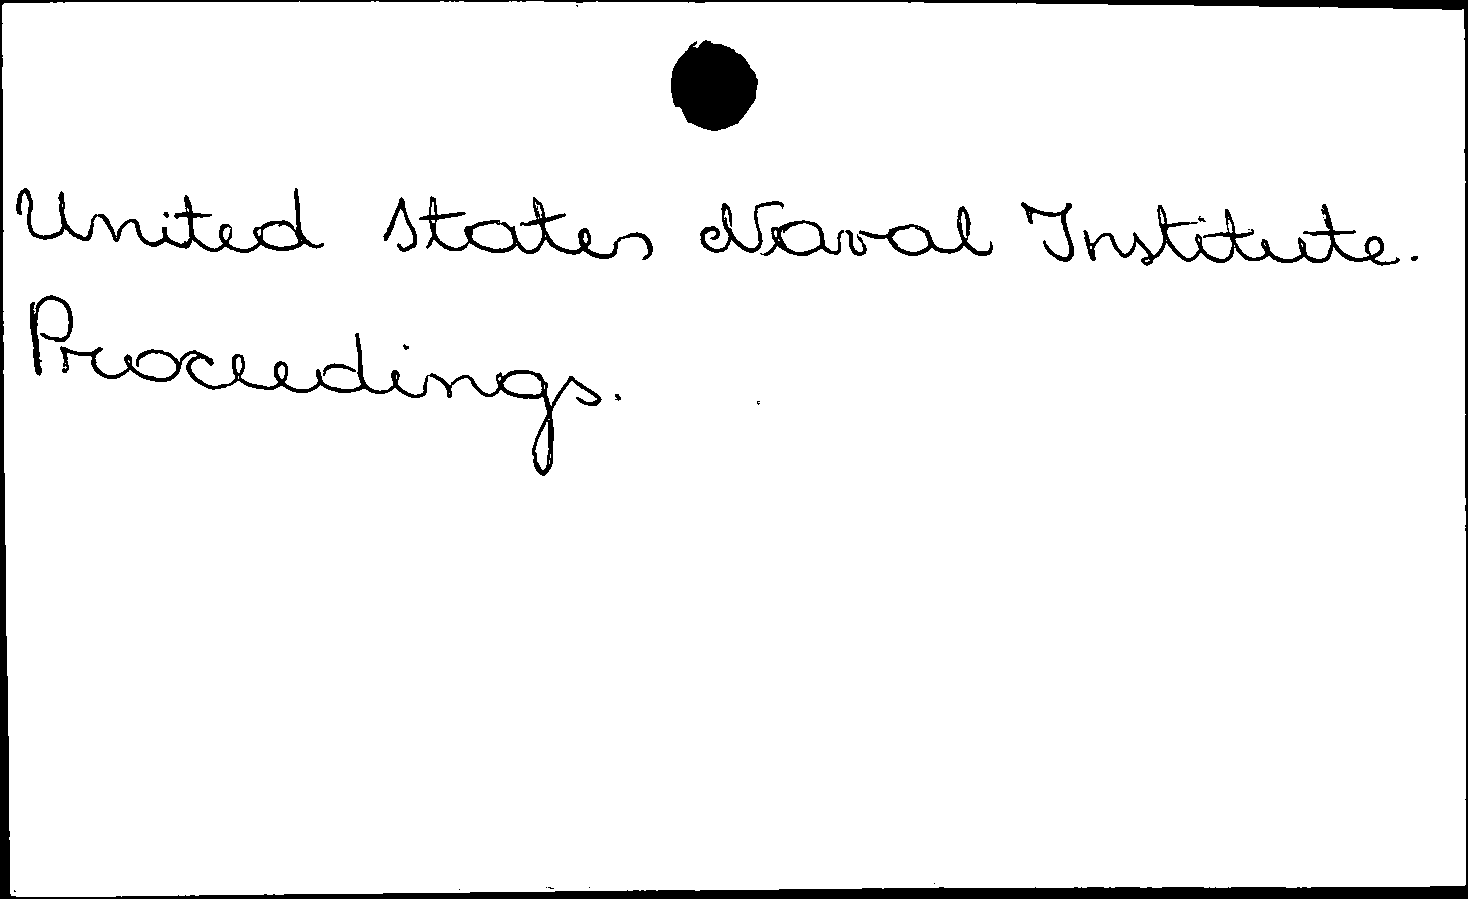 United States Naval Institute.
Proceedings.